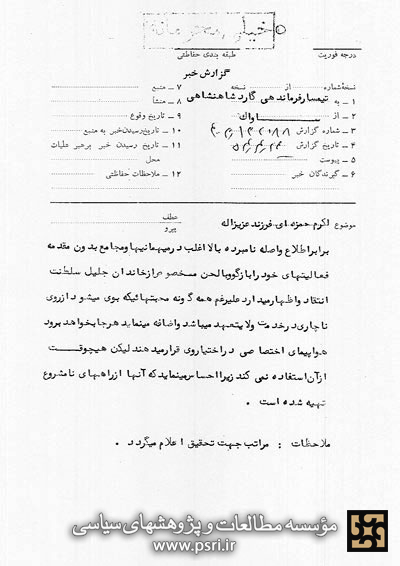 خیلی محرمانه
درجه فوریت
طبقه بندی حفاظتی
گزارش خبر
نسخه شماره از نسخه
۱ - به تیمسار فرماندهی گارد شاهنشاهی
۲ - از ساواک
۳ - شماره گزارش
۴ - تاریخ گزارش
۵ - پیوست
۶ - گیرندگان خبر
۷ - منبع
۸ - منشأ
۹ - تاریخ وقوع
۱۰ - تاریخ رسیدن خبر به منبع
۱۱ - تاریخ رسیدن خبر برهبر عملیات محل
۱۲ - ملاحظات حفاظتی
موضوع اکرم حمزه ای فرزند عزیزاله
عطف
پیرو
برابر اطلاع واصله نامبرده بالا اغلب در میهمانیها و مجامع بدون مقدمه
فعالیتهای خود را بازگو و بالحن مخصوص از خاندان جلیل سلطنت
انتقاد و اظهار میدارد علیرغم همه گونه محبتهائیکه بوی میشود از روی
ناچاری در خدمت ولایتعهد میباشد و اضافه مینماید هرجا بخواهد برود
هواپیمای اختصاصی در اختیار وی قرار میدهند لیکن هیچوقت
از آن استفاده نمی کند زیرا احساس مینماید که آنها از راههای نامشروع
تهیه شده است .
ملاحظات : مراتب جهت تحقیق اعلام میگردد .
مؤسسه مطالعات و پژوهشهای سیاسی
www.psri.ir